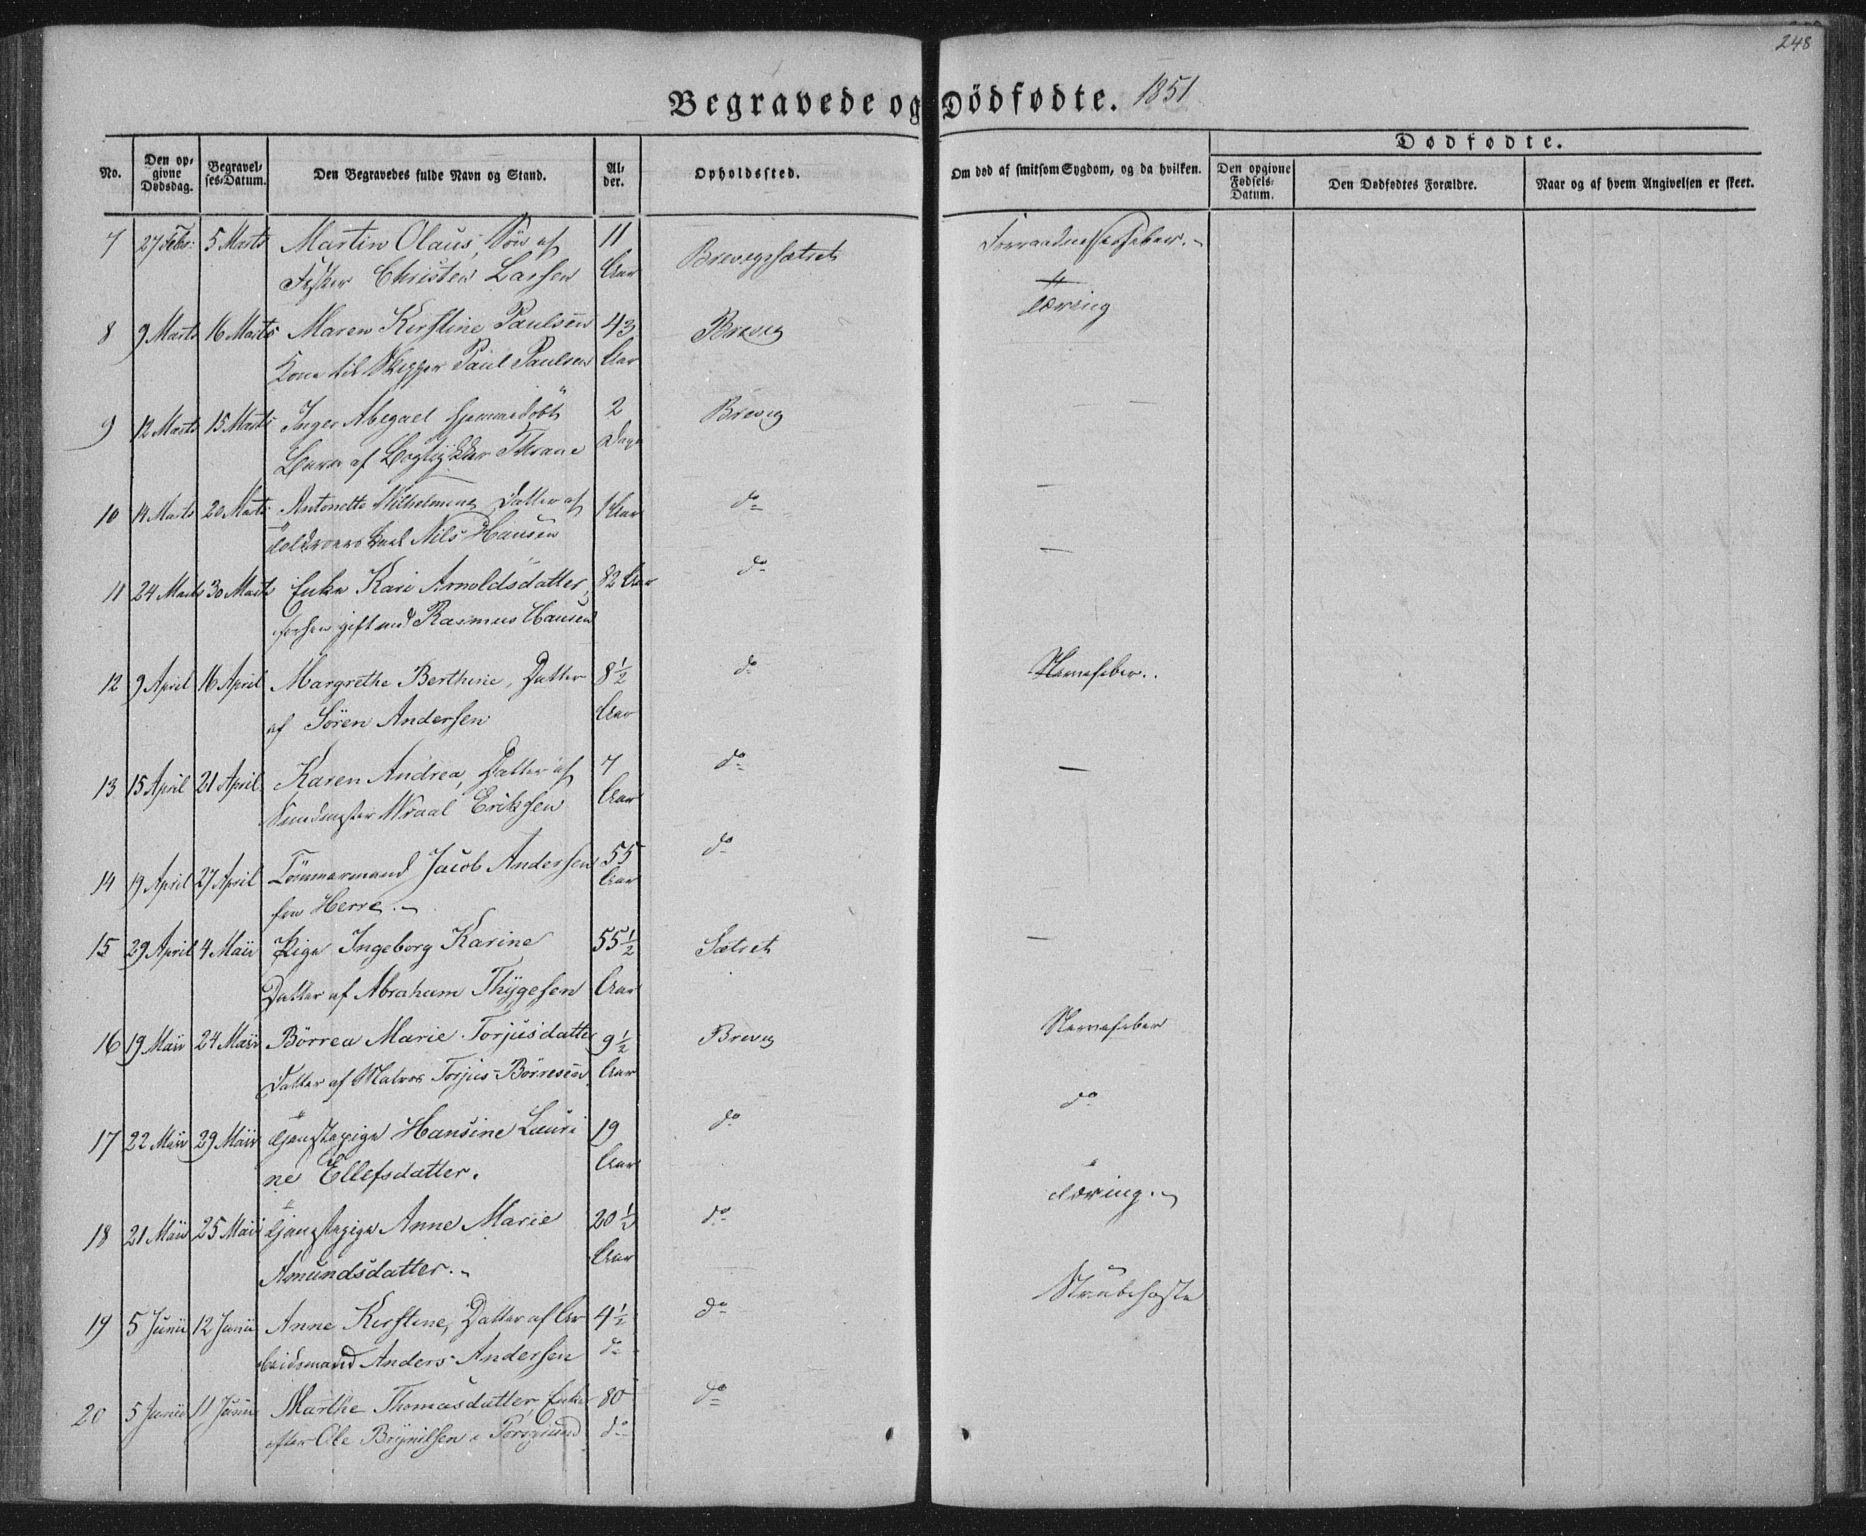 248
Begravede og Dödfødte. 1851
Dødfødte.
No.
Den op-
givne
Dødsdag.
Begravel-
ses-Datum.
Den Begravedes fulde Navn og Stand.
Al-
der.
Opholdssted.
Om død af smitsom Sygdom, og da hvilken.
Den opgivne
Fødsels-
Datum.
Den Dødfødtes Forældre.
Naar og af hvem Angivelsen er skeet.
7 27 Febr. 5 Marts Martin Olaus, Søn af 11
Fisker Christen Larsen Aar Brevigssætret
8 9 Marts 16 Marts Maren Kirstine Paulsen 43 Brevig Tæring
Kone til Skipper Paul Paulsen Aar
9 12 Marts 15 Marts Inger Abegael hjemmedøbt 2 Brevig —
Barn af Thrane Dage
10 14 Marts 20 Marts Antonette Wilhelmine Datter af 1 Aar do —
Nils Hansen
11 24 Marts 30 Marts Enke Kari Arnoldsdatter, 82 Aar do —
forhen gift med Rasmus Hansen
12 9 April 16 April Margrethe Berthine, Datter 8½ do Nervefeber.
af Sören Andersen Aar
13 15 April 21 April Karen Andrea, Datter af 7 do —
Wraal Eriksen Aar
14 19 April 27 April Tömmermand Jacob Andersen 55 do
fra Herre. Aar
15 29 April 4 Maii Pige Ingeborg Karine 55½ Sætret —
Datter af Abraham Thygesen Aar
16 19 Maii 24 Maii Börrea Marie Torjusdatter 9½ Brevig Nervefeber
Datter af Matros Torjus Börresen Aar
17 22 Maii 29 Maii Tjenestepige Hansine Lauri 19 do do
ne Ellefsdatter. Aar
18 21 Maii 25 Maii Tjenestepige Anne Marie 20½ do Tæring.
Amundsdatter. Aar
19 5 Junii 12 Junii Anne Kirstine, Datter af Ar 4½ do Strubehoste
beidsmand Anders Andersen do
20 5 Junii 11 Junii Marthe Thomasdatter, Enke 80 do
efter Ole Brynilsen i Porsgrund do